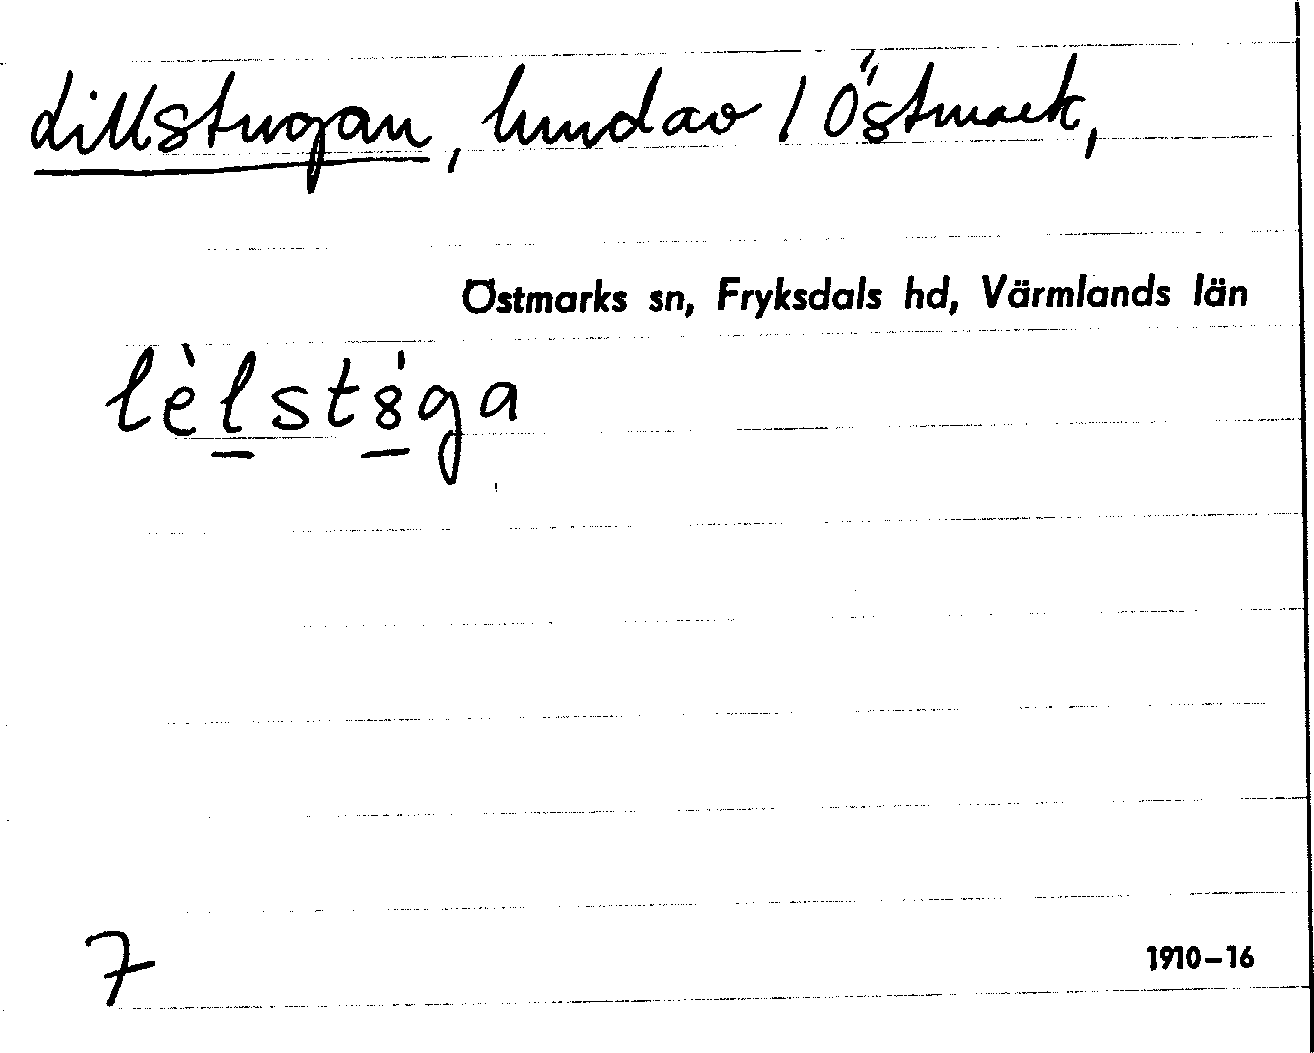 Lillstugan, hmdav / Östmark,
Östmarks sn, Fryksdals hd, Värmlands län
lèlst8́ga
7
1910–16